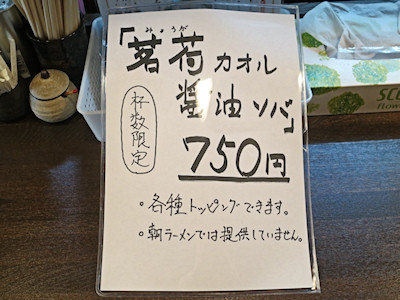 みょうが
「茗荷カオル
醤油ソバ」
杯数限定
750円
。各種トッピングできます。
。朝ラーメンでは提供していません。